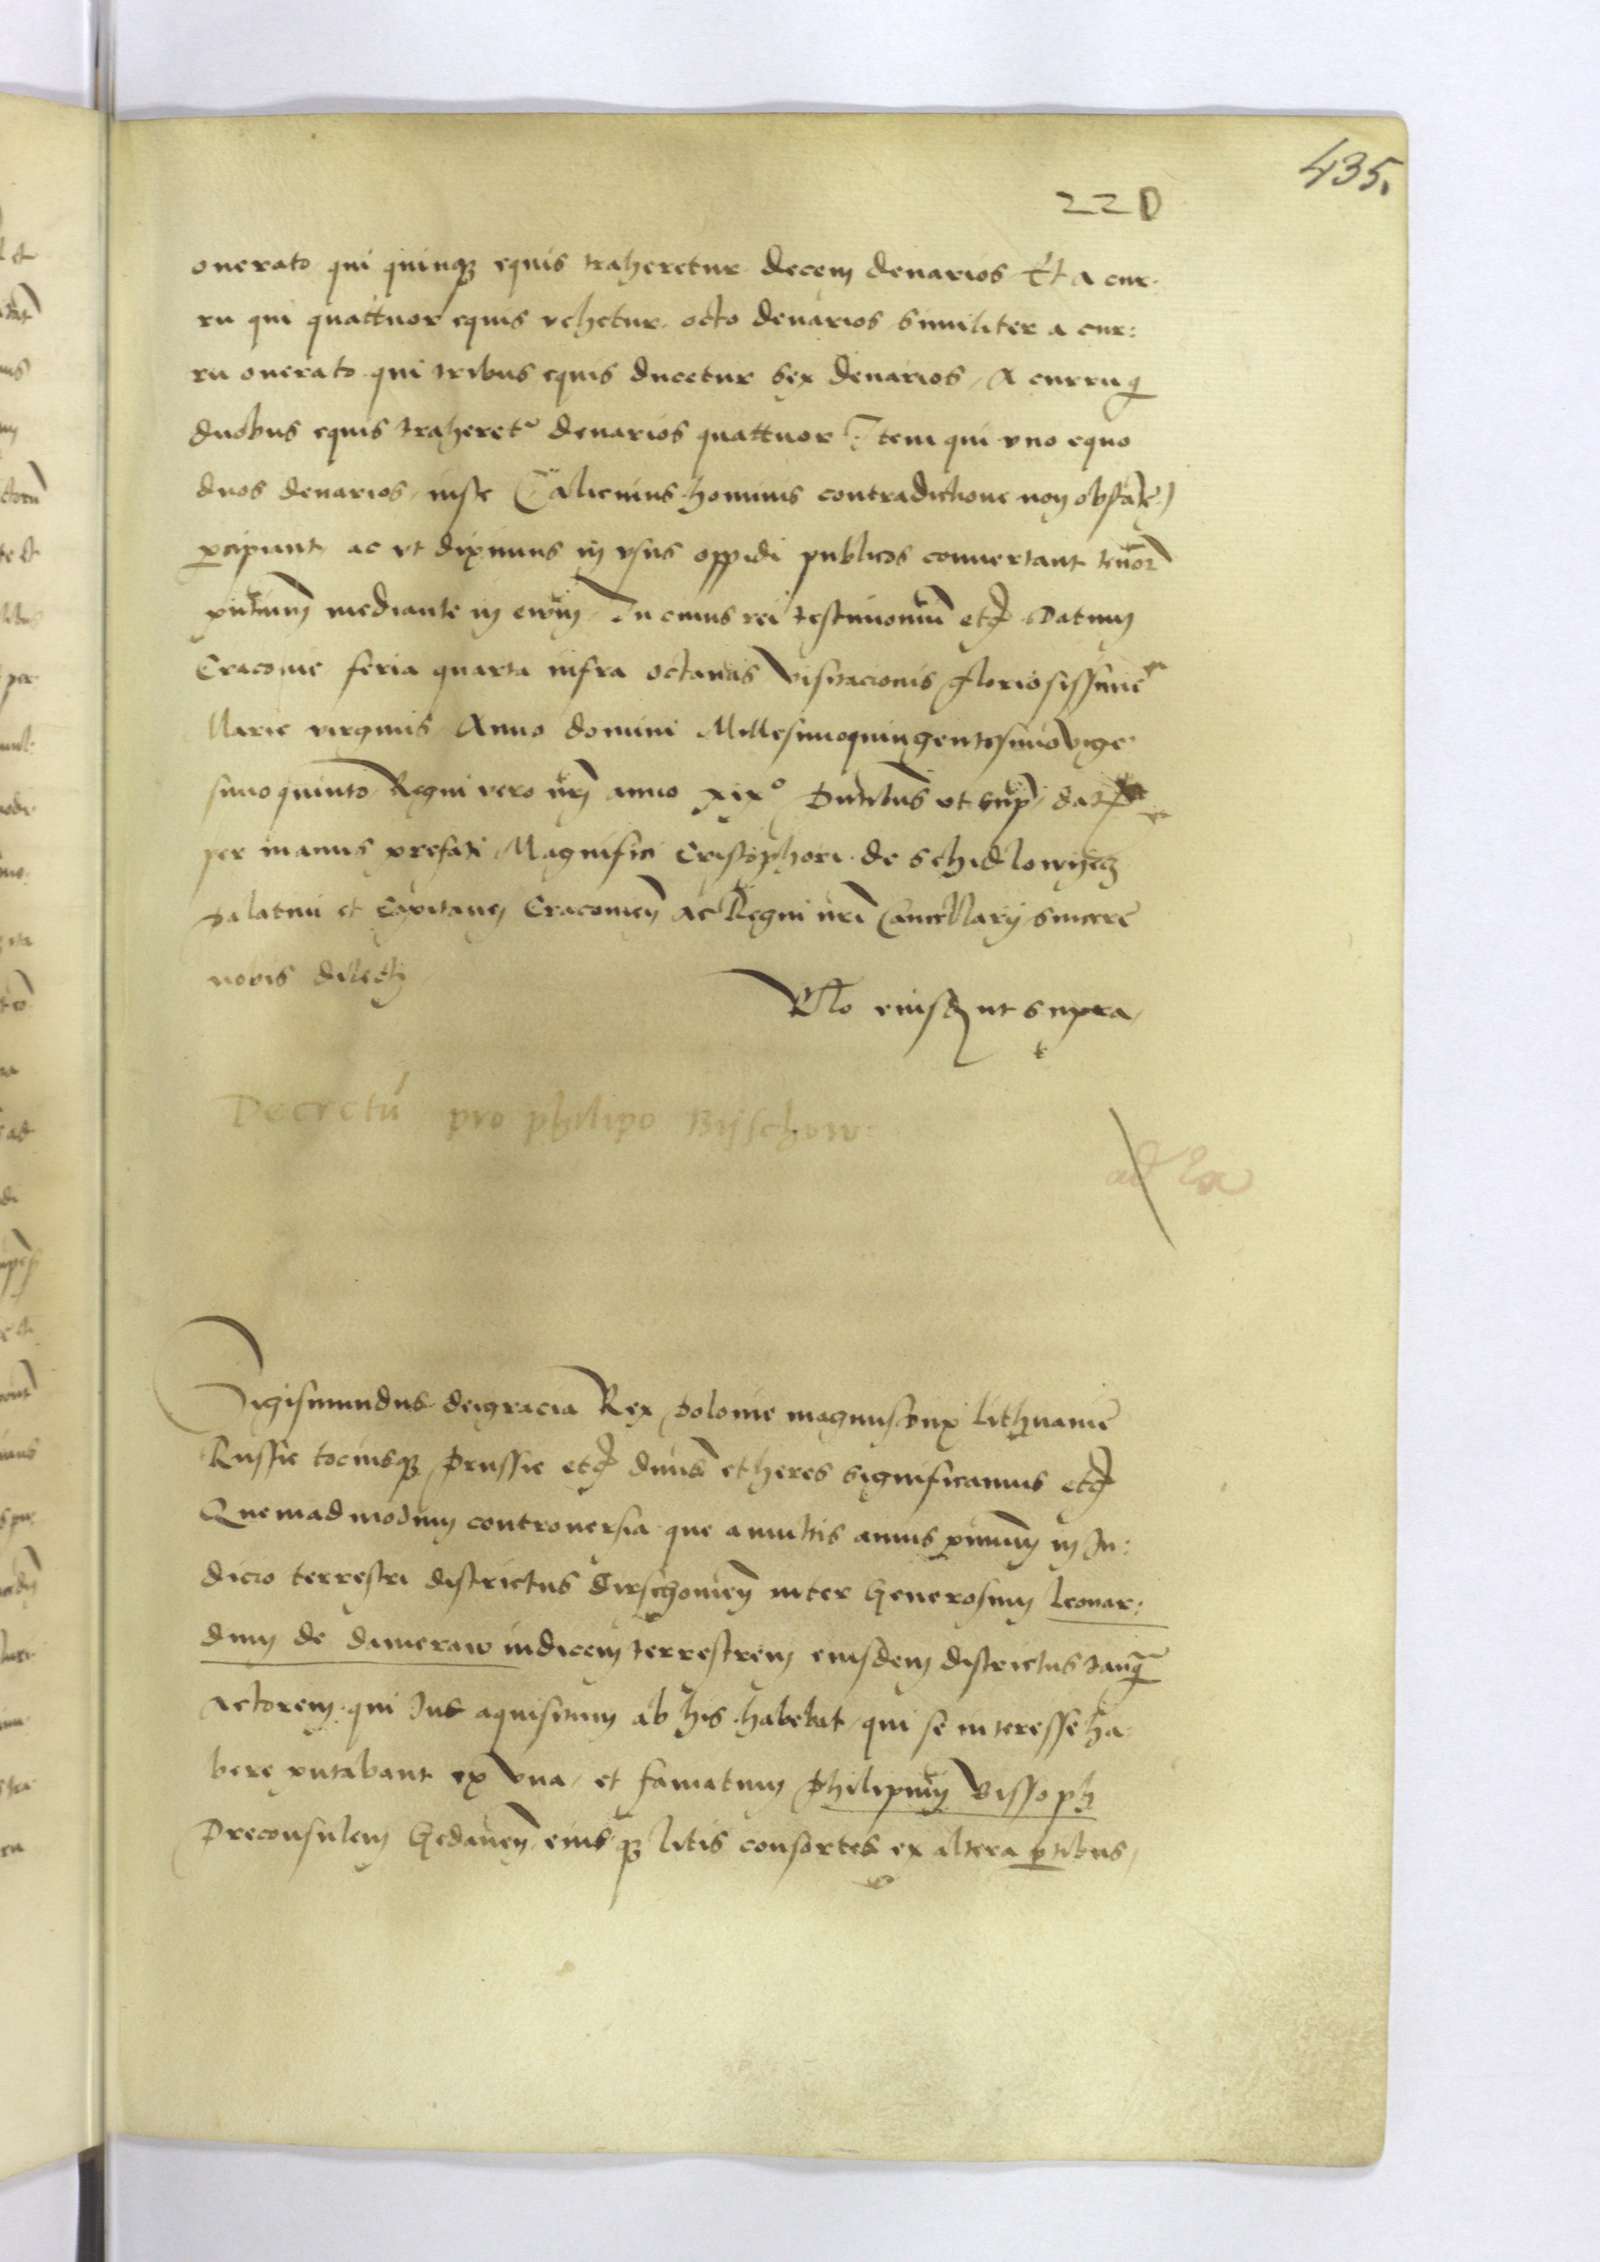 435.
220
onerato qui quinq equis traheretur decem denarios Et a cur-
ru qui quattuor equis vehetur octo denarios similiter a cur:
ru onerato qui tribus equis ducetur sex denarios, A curru q
duobus equis traheret denarios quattuor Item qui vno equo
duos denarios, iuste alienius hominis contradictione non obstante
percipiant ac vt diximus in vsus oppidi publicos conuertant tenore
mediante in euum In cuius rei testimonium etc Datum
Cracouie feria quarta infra octauas visitacionis gloriosissime
Marie virginis Anno domini Millesimoquingentesimovige
simoquinto Regni vero nri anno xixo ut supra dat
per manus prefati Magnifici Cristophori de Schidlowyecz
palatini et Capitanei Cracouien ac Regni nri Cancellarij sincere
nobis dilecti
Rlo eiusdem ut supra
Decretu pro philipo Bijschow
Sigismundus deigracia Rex Polonie magnusdux Lithuanie
Russie tociusq Prussie etc dnus et heres significamus etc
Quemadmodum controuersia que a multis annis primum in Ju:
dicio terrestri districtus Dirschouien inter Generosum leonar:
dum de dameraw iudicem terrestrem eiusdem districtus tanq
actorem qui Jus aquisitum ab his habebat qui se interesse ha
bere putabant ex vna, et famatum Philipum Bissoph
Preconsulem Gedanen eiusq litis consortes ex altera ptibus,